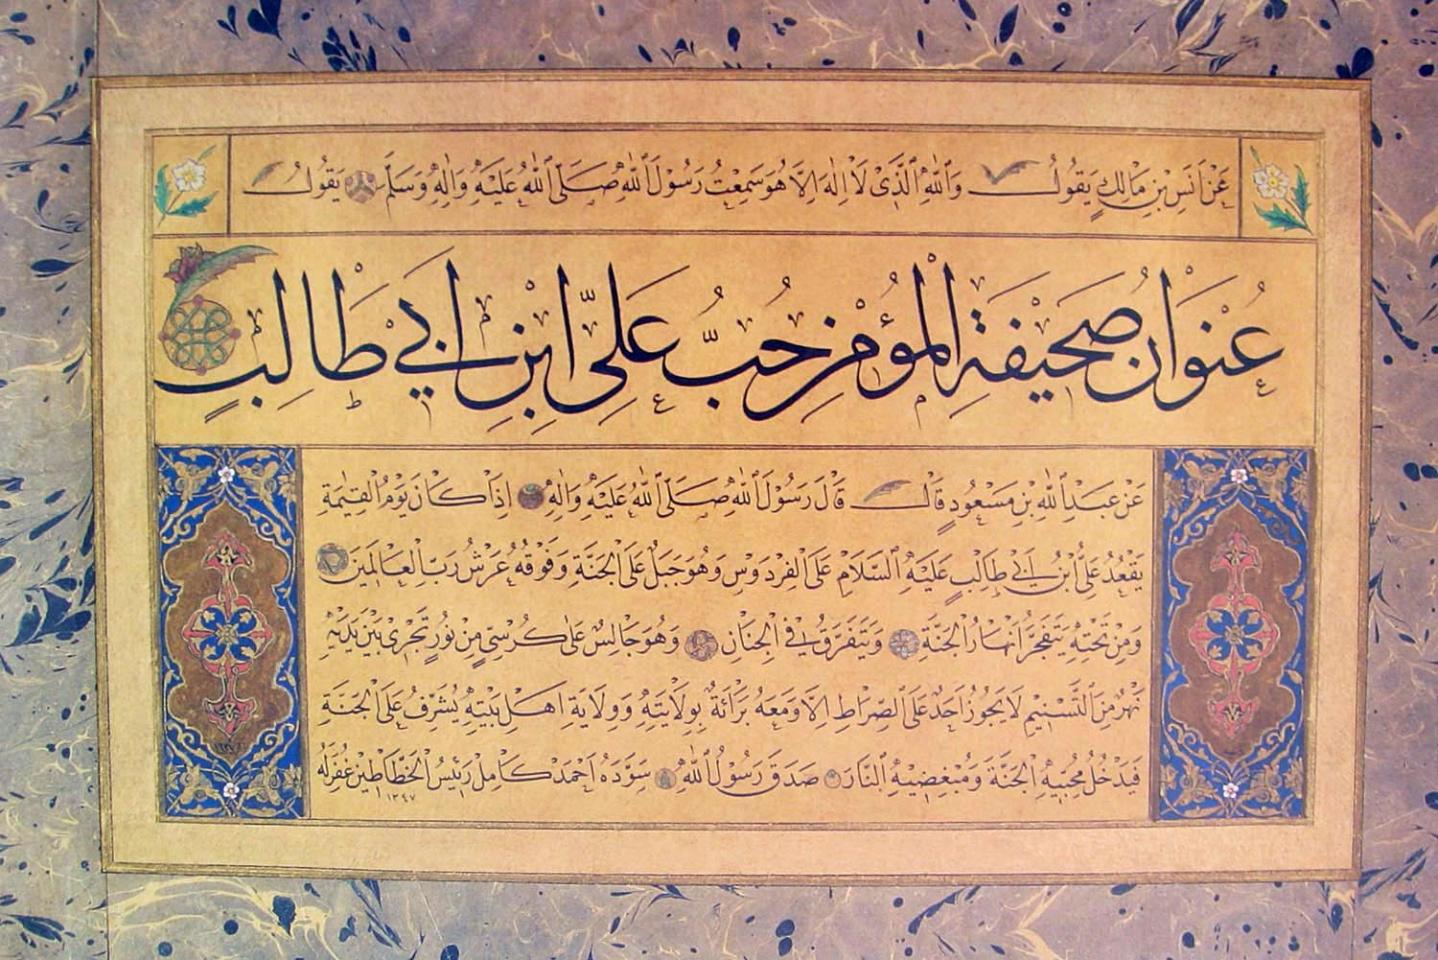 عَنْ اَنَسِ بْنِ مَالِكٍ يَقُولُ وَاللّٰهِ الَّذِى لَا اِلٰهَ اِلَّا هُوَ سَمِعْتُ رَسُولَ اللّٰهِ صَلَّى اللّٰهُ عَلَيْهِ وَاٰلِهِ وَسَلَّمَ يَقُولُ
عُنْوَانُ صَحِيْفَةِ الْمُؤْمِنِ حُبُّ عَلِيِّ ابْنِ اَبِي طَالِبٍ
عَنْ عَبْدِ اللّٰهِ بْنِ مَسْعُودٍ قَالْ قَالَ رَسُوْلُ اللّٰهِ صَلَّى اللّٰهُ عَلَيْهِ وَاٰلِهِ اِذَا كَانَ يَوْمُ الْقِيٰمَةِ
يَقْعُدُ عَلِيُّ ابْنُ اَبِي طَالِبٍ عَلَيْهِ السَّلَامْ عَلَى الْفِرْدَوْسِ وَهُوَ جَبَلٌ عَلَى الْجَنَّةِ وَفَوْقَهُ عَرْشُ رَبِّ الْعَالَمِيْنَ
وَمِنْ تَحْتِهِ يَتَفَجَّرُ اَنْهَارُ الْجَنَّةِ وَيَتَفَرَّقُ فِي الْجِنَانِ وَهُوَ جَالِسٌ عَلَى كُرْسِيٍّ مِنْ نُورٍ تَجْرِى بَيْنَ يَدَيْهِ
نَهْرٌ مِنَ التَّسْنِيْمِ لَا يَجُوزُ اَحَدٌ عَلَى الصِّرَاطِ اِلَّا وَمَعَهُ بَرْائَةٌ بِوِلَايَتِهِ وَوِلَايَةِ اَهْلِ بَيْتِهِ يُشْرِفُ عَلَى الْجَنَّةِ
فَيَدْخُلُ مُحِبِّيهِ الْجَنَّةَ وَمُبْغِضِيْهِ النَّارَ صَدَقَ رَسُوْلُ اللّٰهِ سَوَّدَهُ اَحْمَدْ كَامِلْ رَئِيْسُ الْخَطَّاطِيْنَ غُفِرَلَهُ
١٣٤٧